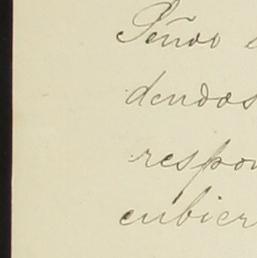 Señor
dendos
respon
cubier